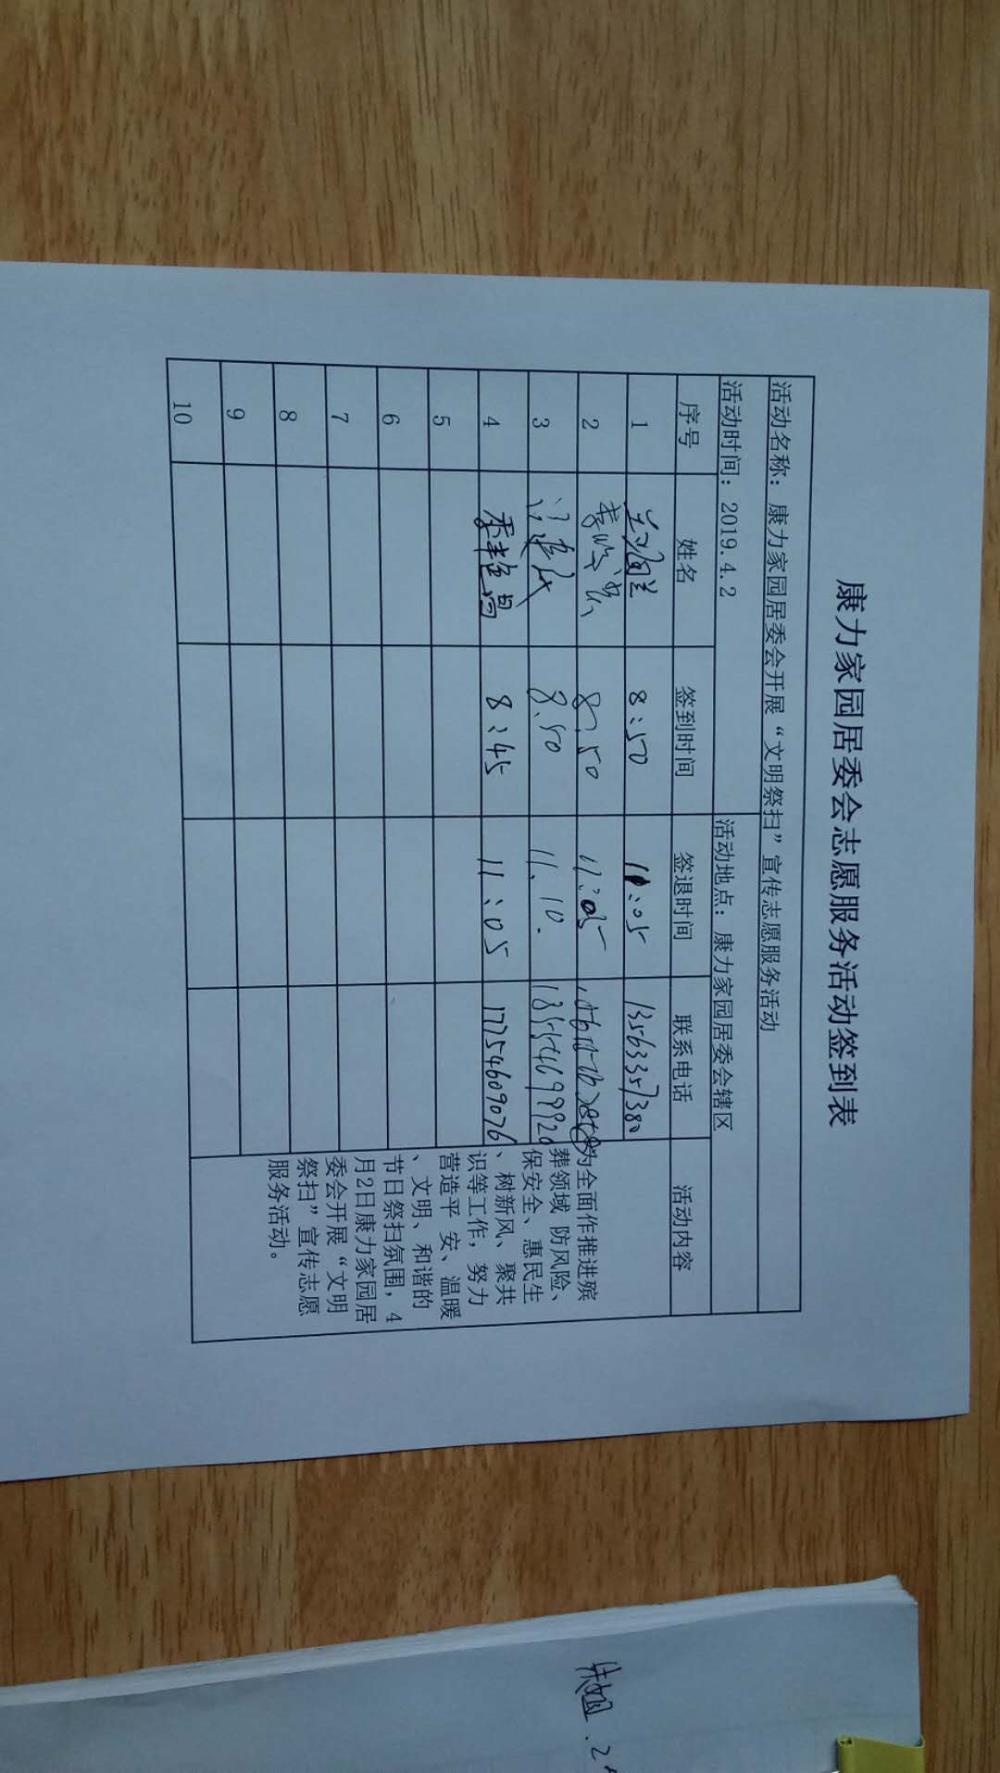 康力家园居委会志愿服务活动签到表
活动名称：康力家园居委会开展“文明祭扫”宣传志愿服务活动
活动时间：2019.4.2 活动地点：康力家园居委会辖区
序号 姓名 签到时间 签退时间 联系电话 活动内容
1 8:50 11:05 13563357380
2 8:50 11:05
3 8.50 11.10.
4 8:45 11:05 17754609076
5
6
7
8
9
10
为全面作推进殡
葬领域 防风险、
保安全、惠民生
、树新风、聚共
识等工作，努力
营造平 安、温暖
、文明、和谐的
节日祭扫氛围，4
月2日康力家园居
委会开展“文明
祭扫”宣传志愿
服务活动。